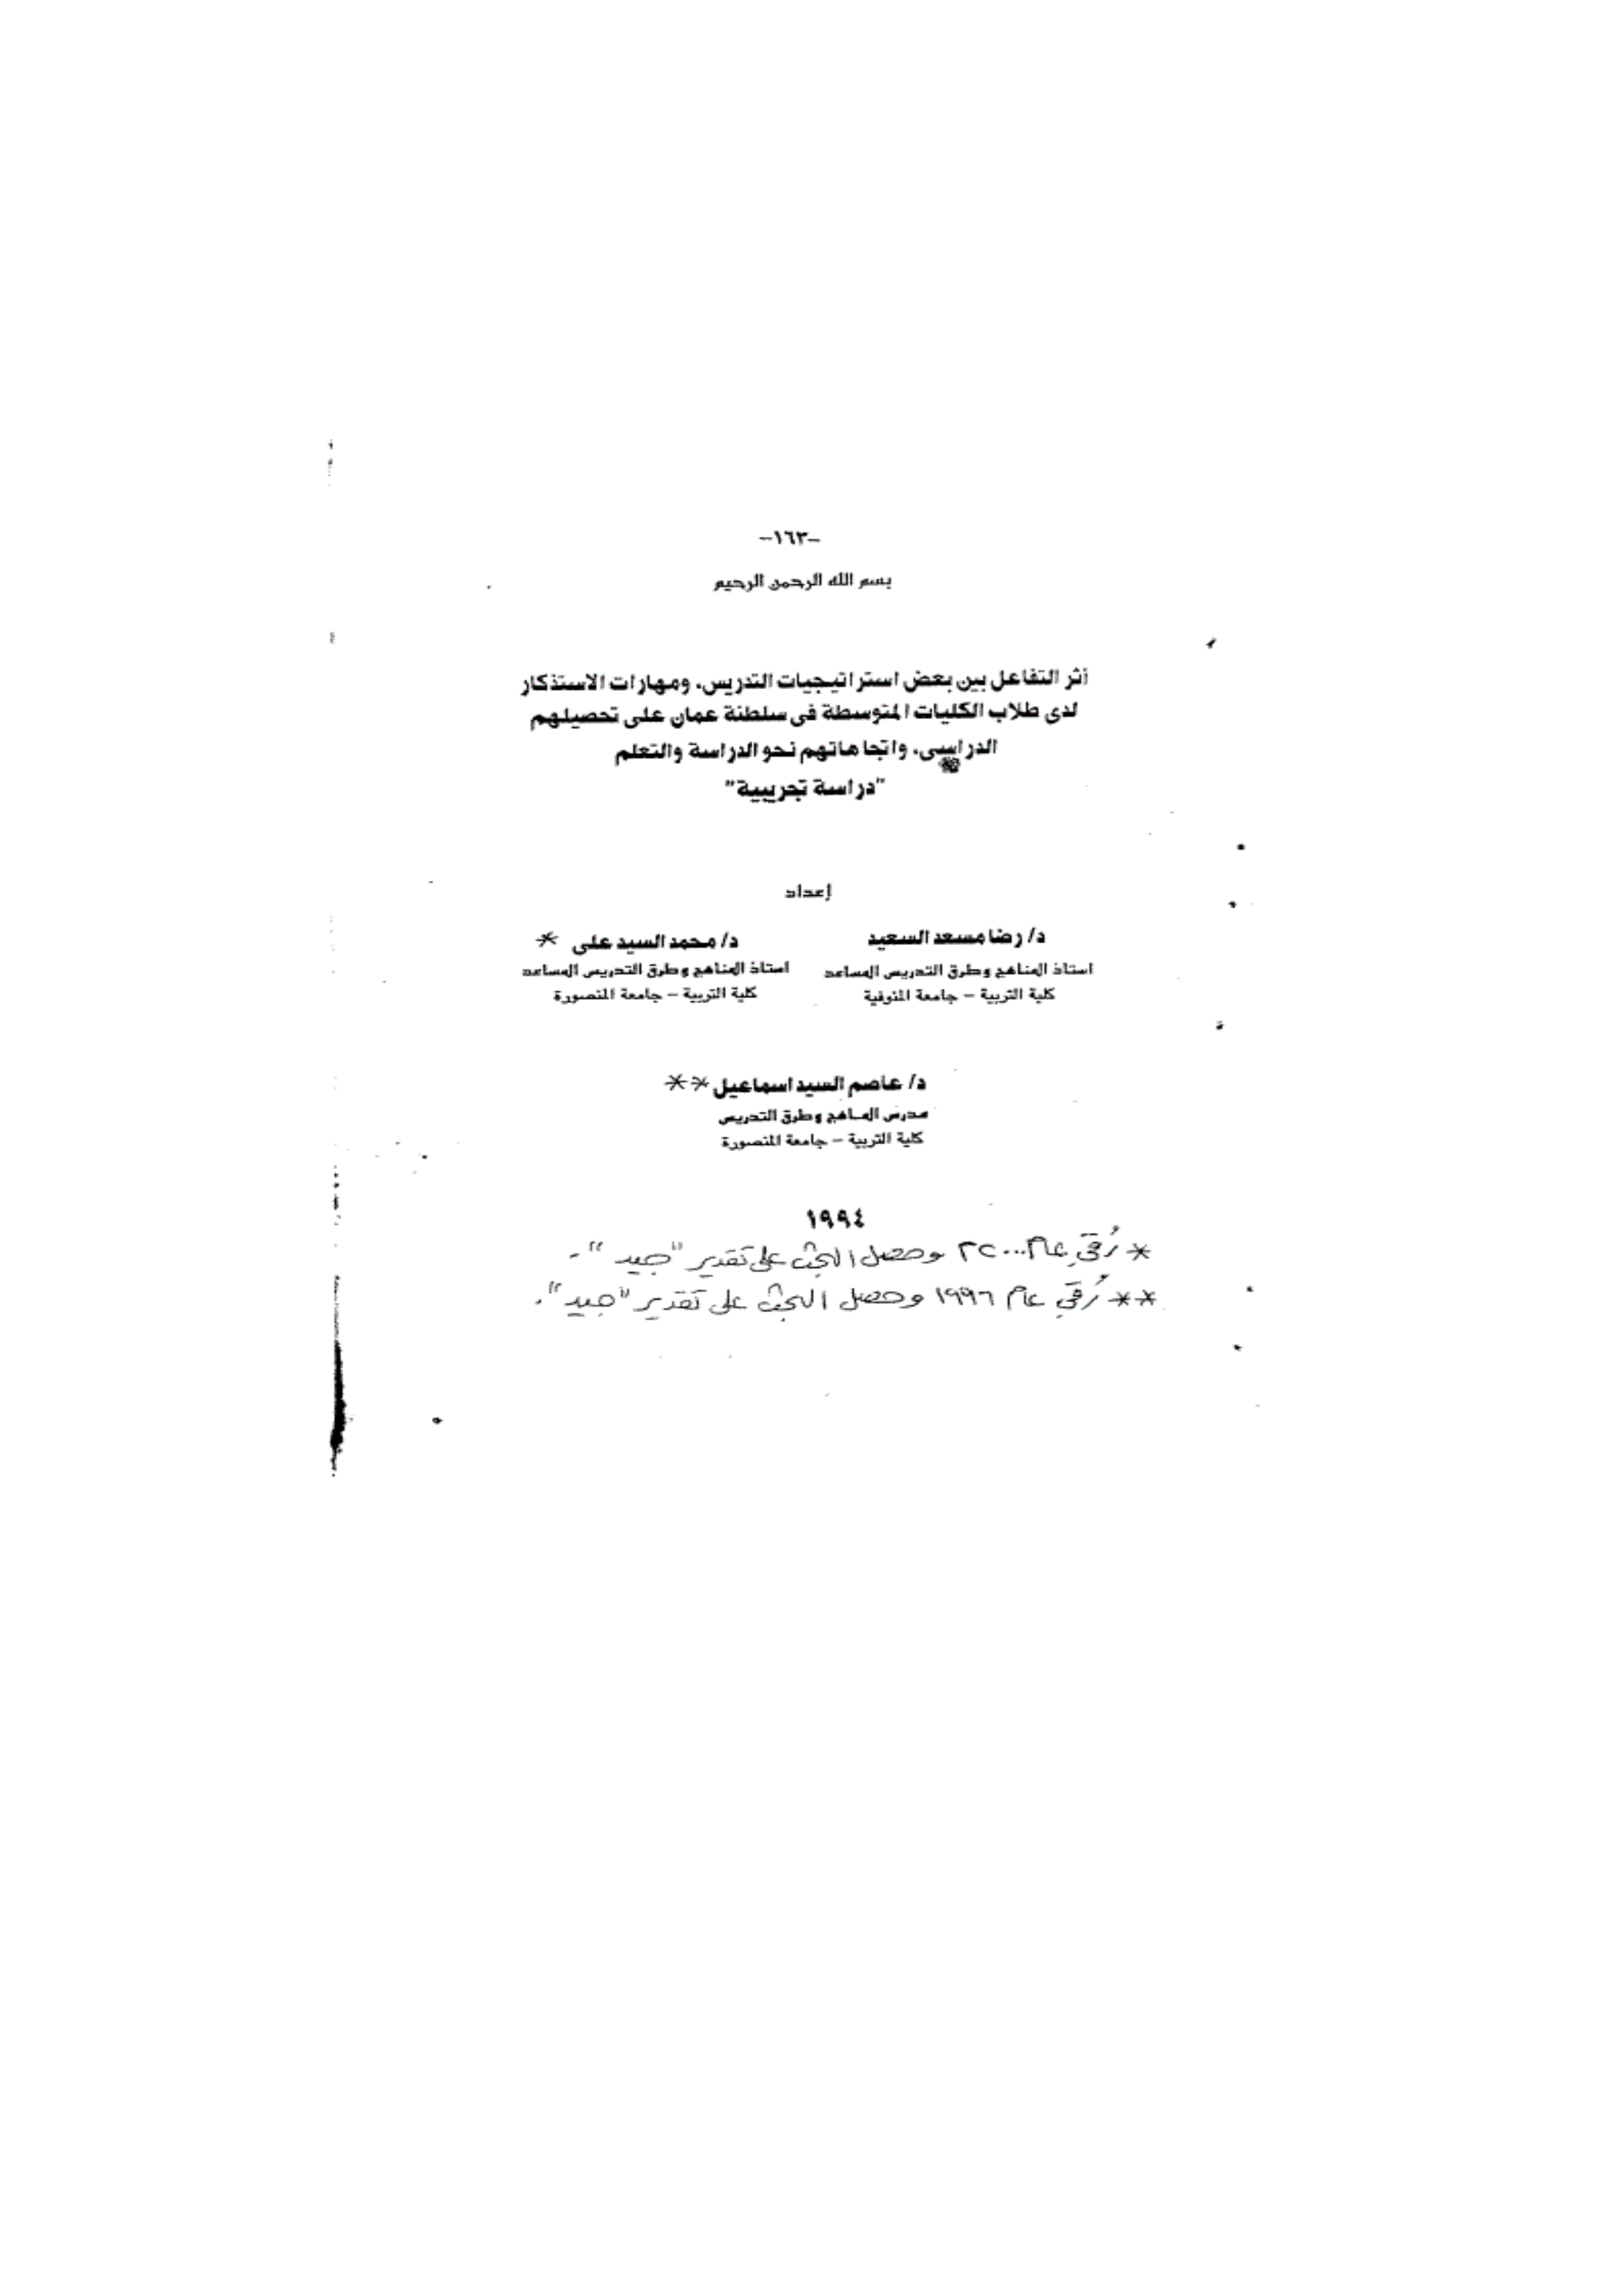 -١٦٣-
بسم الله الرحمن الرحيم
أثر التفاعل بين بعض استراتيجيات التدريس، ومهارات الاستذكار
لدى طلاب الكليات المتوسطة فى سلطنة عمان على تحصيلهم
الدراسى، واتجاهاتهم نحو الدراسة والتعلم
"دراسة تجريبية"
إعداد
د/ رضا مسعد السعيد
استاذ المناهج وطرق التدريس المساعد
كلية التربية – جامعة المنوفية
د/ محمد السيد على *
استاذ المناهج وطرق التدريس المساعد
كلية التربية – جامعة المنصورة
د/ عاصم السيد اسماعيل **
مدرس المناهج وطرق التدريس
كلية التربية – جامعة المنصورة
١٩٩٤
* رُقي عام وحصل البحث على تقدير "جيد".
** رُقي عام ١٩٩٦ وحصل البحث على تقدير "جيد".